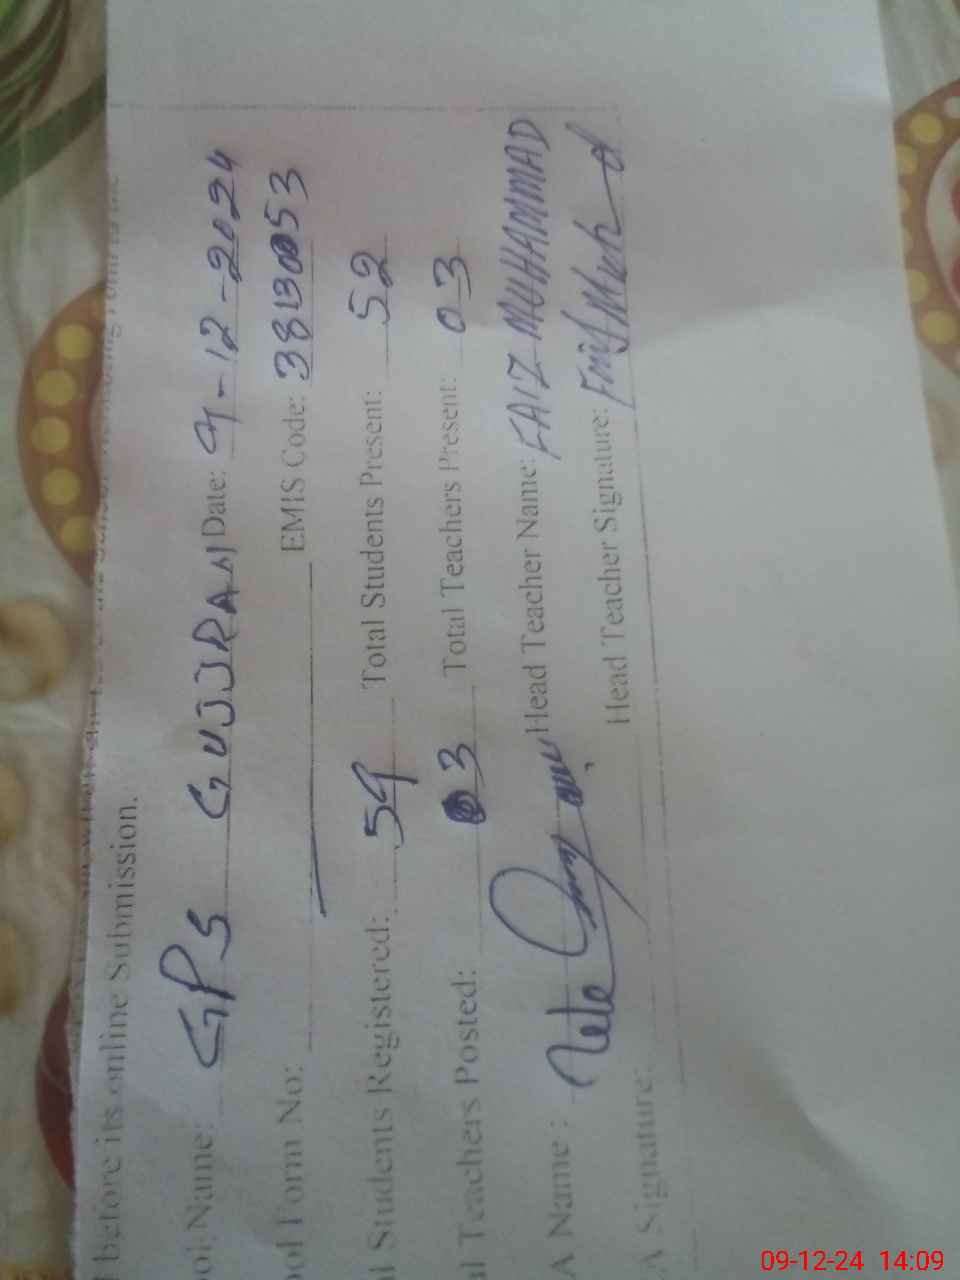 before its online Submission.
ool Name: GPS GUJJRANI Date: 9-12-2024
ool Form No: EMIS Code: 38130053
al Students Registered: 59 Total Students Present: 52
al Teachers Posted: 03 Total Teachers Present: 03
A Name: Head Teacher Name: FAIZ MUHAMMAD
A Signature: Head Teacher Signature:
09-12-24 14:09